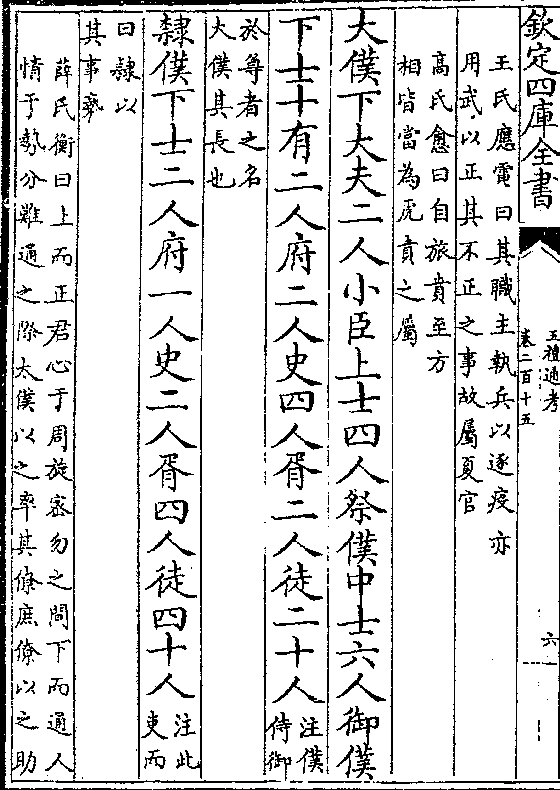 欽定四庫全書
五禮通考
卷二百十五
六
王氏應電曰其職主執兵以逐疫亦
用武以正其不正之事故屬夏官
高氏愈曰自旅賁至方
相皆當為虎賁之屬
大僕下大夫二人小臣上士四人祭僕中士六人御僕
下士十有二人府二人史四人胥二人徒二十人
注僕
侍御
於尊者之名
大僕其長也
隸僕下士二人府一人史二人胥四人徒四十人
注此
吏而
曰隷以
其事䙝
薛氏衡曰上而正君心于周旋密勿之間下而通人
情于勢分難通之際太僕以之率其僚庶僚以之助